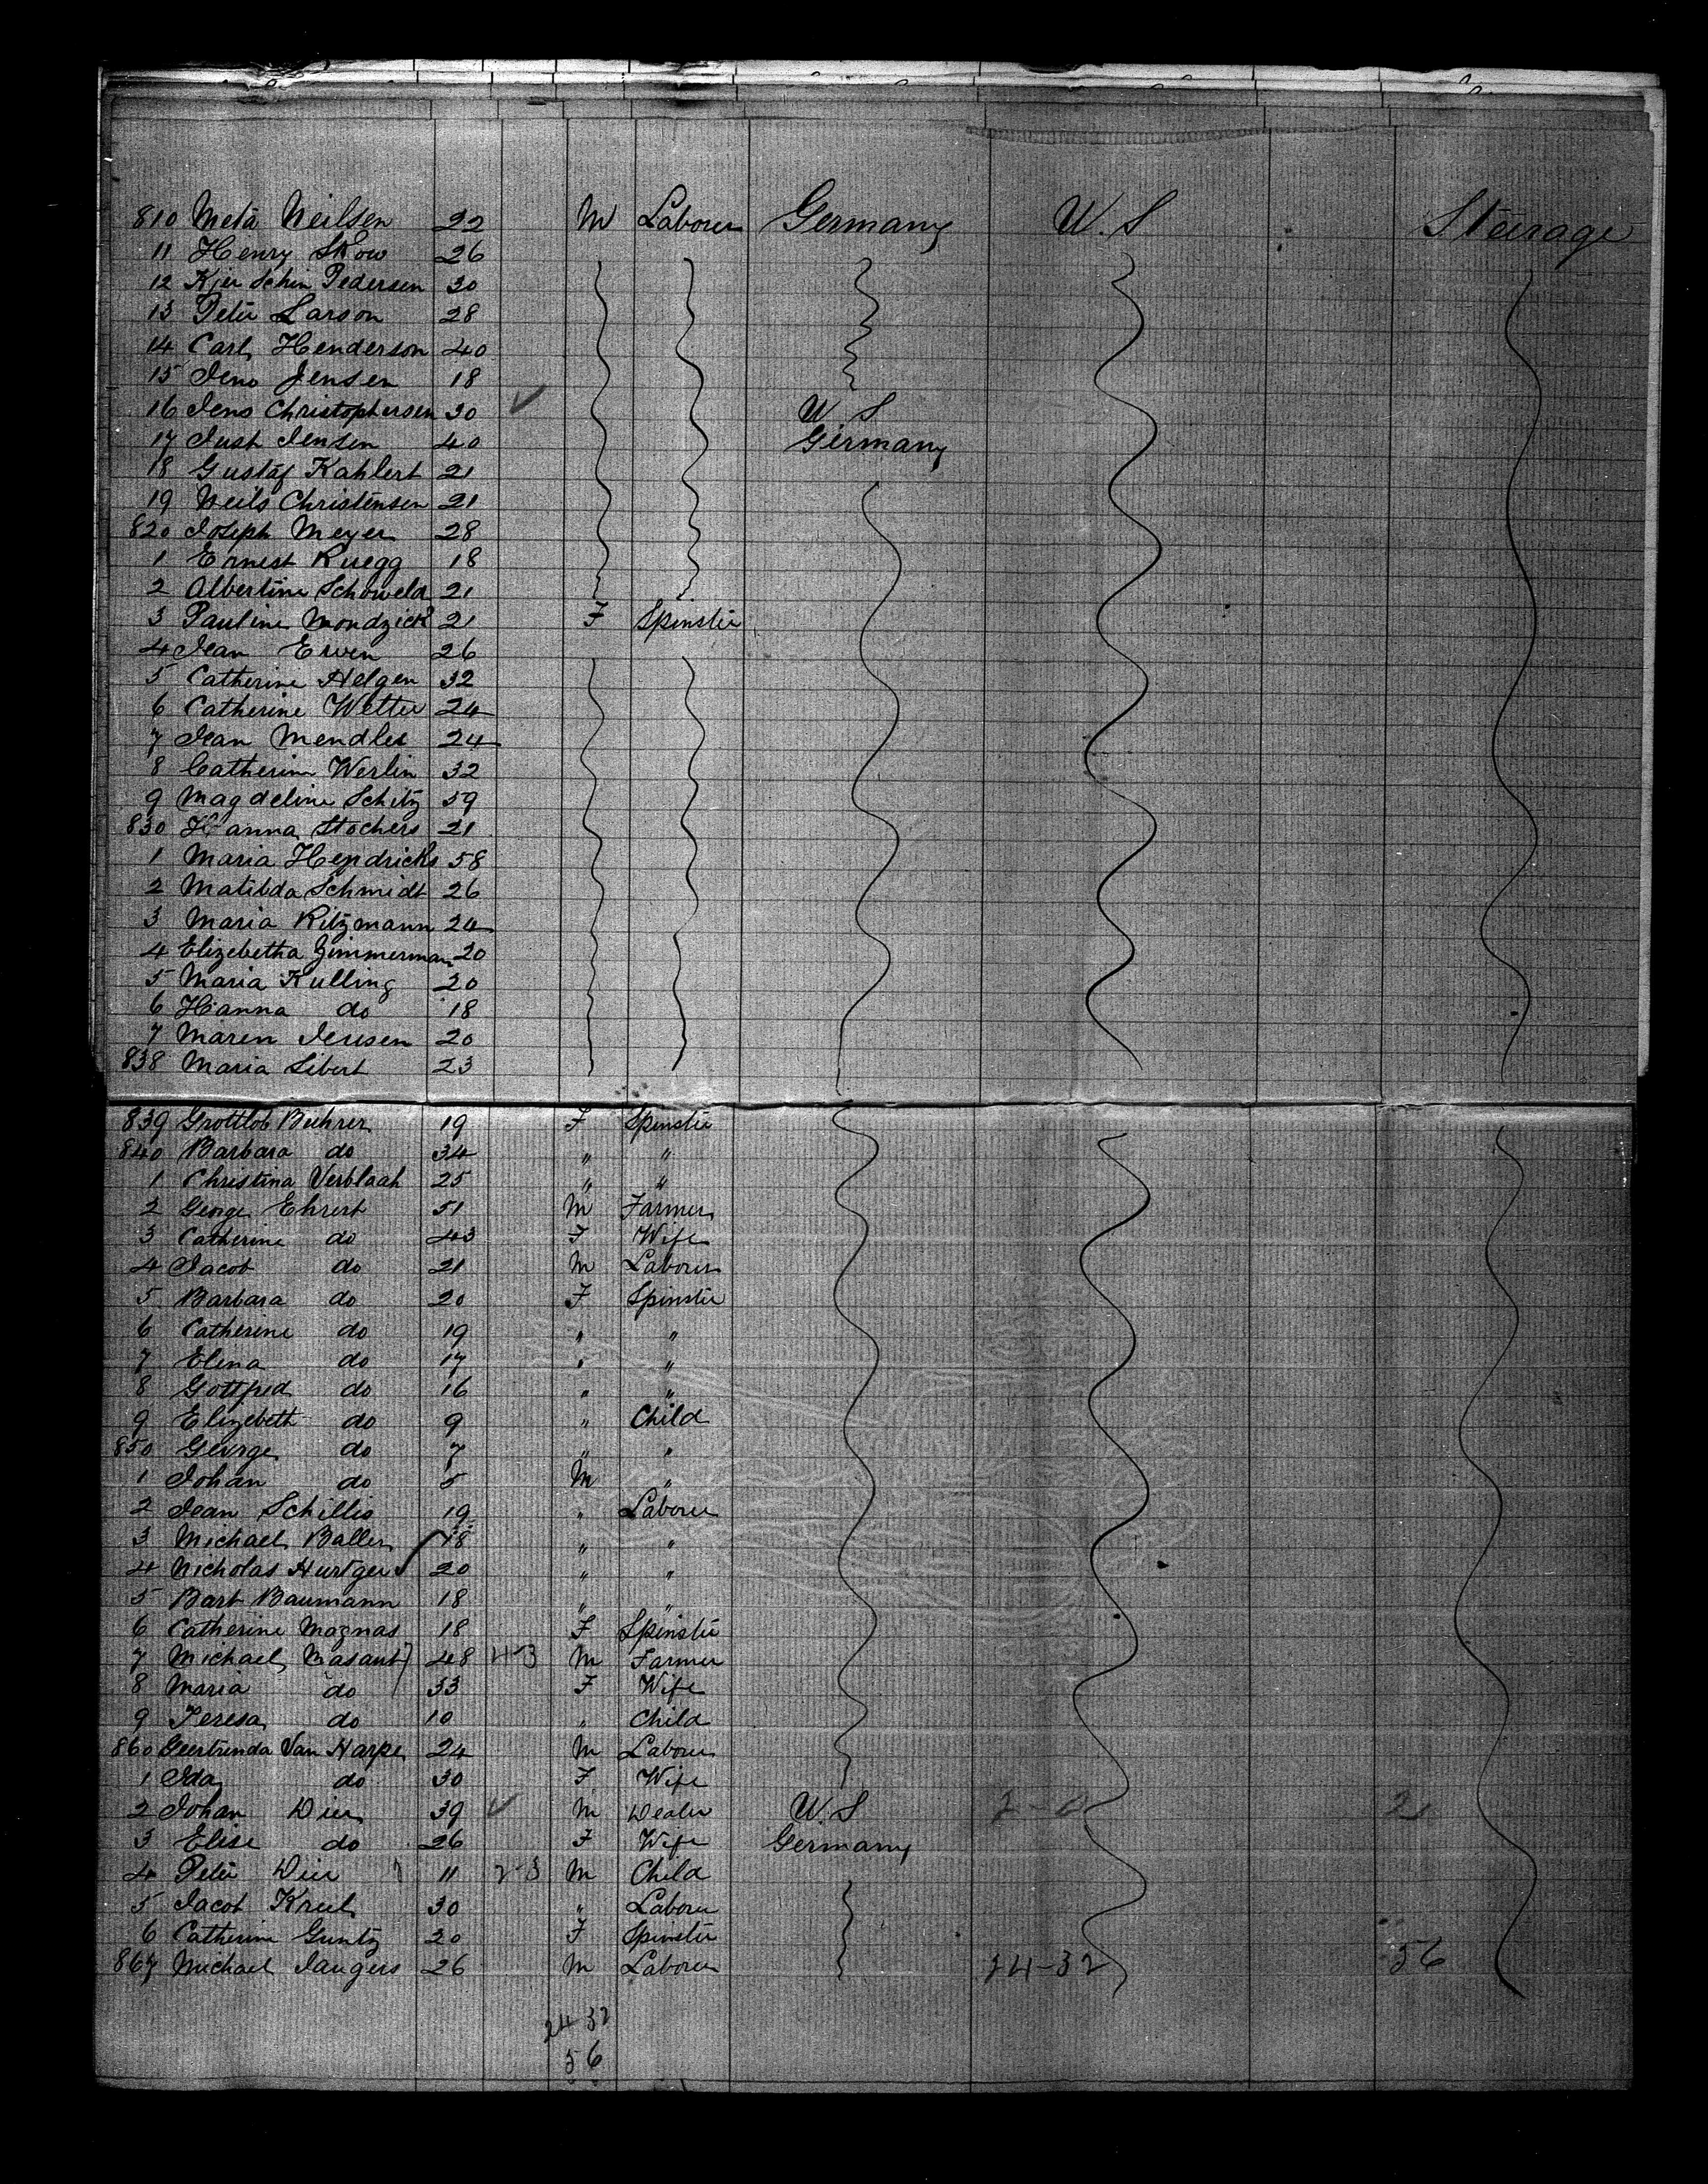 810 Meta Neilsen 22 M Laborer Germany U.S Steerage
11 Henry Skow 26
12 Kjer Schin Pedersen 30
13 Peter Larson 28
14 Carl Henderson 40
15 Jens Jensen 18
16 Jens Christophersen 30 ✓ U S
17 Just Jensen 40 Germany
18 Gustaf Kahlert 21
19 Neils Christensen 21
820 Joseph Meyer 28
1 Ernest Ruegg 18
2 Albertine Schoweld 21
3 Pauline Mondzick 21 F Spinster
4 Jean Erven 26
5 Catherine Helgen 32
6 Catherine Wetter 24
7 Jean Mendler 24
8 Catherine Werlin 32
9 Magdeline Schitz 59
830 Hanna Stochers 21
1 Maria Hendricks 58
2 Matilda Schmidt 26
3 Maria Ritzmann 24
4 Elizebetha Zimmerman 20
5 Maria Kulling 20
6 Hanna do 18
7 Maren Jensen 20
838 Maria Sibert 23
839 Grottlob Buhrer 19 F Spinster
840 Barbara do 34 " "
1 Christina Verblaah 25 " "
2 George Ehrert 51 M Farmer
3 Catherine do 43 F Wife
4 Jacob do 21 M Laborer
5 Barbara do 20 F Spinster
6 Catherine do 19 " "
7 Elina do 17 " "
8 Gottfred do 16 " "
9 Elizebeth do 9 " Child
850 George do 7 " "
1 Johan do 5 M "
2 Jean Schillio 19 " Laborer
3 Michael Baller 18 " "
4 Nicholas Hurtger 20 " "
5 Bart Baumann 18 " "
6 Catherine Magnas 18 F Spinster
7 Michael Masant 48 4-3 M Farmer
8 Maria do 33 F Wife
9 Teresa do 10 " Child
860 Geertrenda Van Harpe 24 M Laborer
1 Ida do 30 F Wife
2 Johan Dier 39 ✓ M Dealer U.S 2-0 2
3 Elise do 26 F Wife Germany
4 Peter Dier 11 2-3 M Child
5 Jacob Kreil 30 " Laborer
6 Catherine Guntz 20 F Spinster
867 Michael Jaugers 26 M Laborer 24-32 56
24 32
56